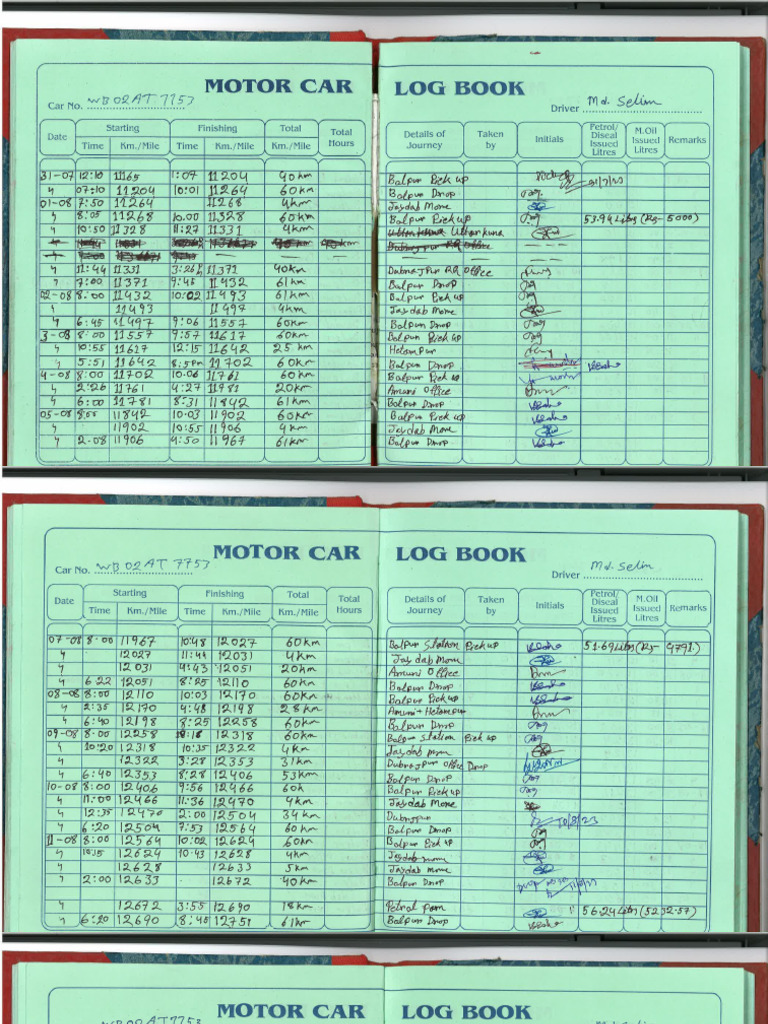 MOTOR CAR LOG BOOK
Car No. WB 02 AT 7753 Driver Md. Selim
Date Starting Finishing Total Total Hours Details of Journey Taken by Initials Petrol/ Diseal Issued Litres M.Oil Issued Litres Remarks
Time Km./Mile Time Km./Mile Km./Mile
31-07 12:10 11165 1:07 11204 40km Balpur Pick up 31/7/23
" 07:10 11204 10:01 11264 60km Balpur Drop
01-08 7:50 11264 11268 4km Jaydab More
" 8:05 11268 10.00 11328 60km Balpur Pick up 53.94 Litrs (Rs- 5000)
" 10:50 11328 11:27 11331 4km
" 11:44 11331 3:26 11371 40km Dubrajpur RQ Office
" 7:00 11371 9:45 11432 61km Balpur Drop
02-08 8:00 11432 10:02 11493 61km Balpur Pick up
" 11493 11497 4km Jaydab More
" 6:45 11497 9:06 11557 60km Balpur Drop
3-08 8:00 11557 9:57 11617 60km Balpur Pick up
" 10:55 11617 12:15 11642 25 km Hetampur
" 5:51 11642 8:5pm 11702 60km Balpur Drop
4-08 8:00 11702 10:06 11761 60km Balpur Pick up
" 2:26 11761 4:27 11781 20km Amuni Office
" 6:00 11781 8:31 11842 61km Balpur Drop
05-08 8:55 11842 10:03 11902 60km Balpur Pick up
" 11902 10:55 11906 4km Jaydab More
" 2-08 11906 4:50 11967 61km Balpur Drop
MOTOR CAR LOG BOOK
Car No. WB 02 AT 7753 Driver Md. Selim
Date Starting Finishing Total Total Hours Details of Journey Taken by Initials Petrol/ Diseal Issued Litres M.Oil Issued Litres Remarks
Time Km./Mile Time Km./Mile Km./Mile
07-08 8:00 11967 10:48 12027 60km Balpur Station Pick up 51.69 Litrs (Rs- 4791.)
" 12027 11:44 12031 4km Jaydab More
" 12031 4:43 12051 20km Amuni Office
" 6:22 12051 8:25 12110 60km Balpur Drop
08-08 8:00 12110 10:03 12170 60km Balpur Pick up
" 2:35 12170 4:48 12198 28km Amuni + Hetampur
" 6:40 12198 8:25 12258 60km Balpur Drop
09-08 8:00 12258 12318 60km Balpur Station Pick up
" 10:20 12318 10:35 12322 4km Jaydab More
" 12322 3:28 12353 31km Dubrajpur Office Drop
" 6:40 12353 8:28 12406 53km Balpur Drop
10-08 8:00 12406 9:56 12466 60k Balpur Pick up
" 11:00 12466 11:36 12470 4km Jaydab More
" 12:35 12470 2:00 12504 34km Dubrajpur 10/8/23
" 6:20 12504 7:53 12564 60km Balpur Drop
11-08 8:00 12564 10:02 12624 60km Balpur Pick up
" 10:15 12624 10:43 12628 4km Jaydab more
" 12628 12633 5km Jaydab More
" 2:00 12633 12672 40km Balpur Drop
" 12672 3:55 12690 18km Petrol Pam 56.24 Litrs (5232.57)
" 6:20 12690 8:45 12751 61km Balpur Drop
MOTOR CAR LOG BOOK
WB 02 AT 7753 Md. Selim